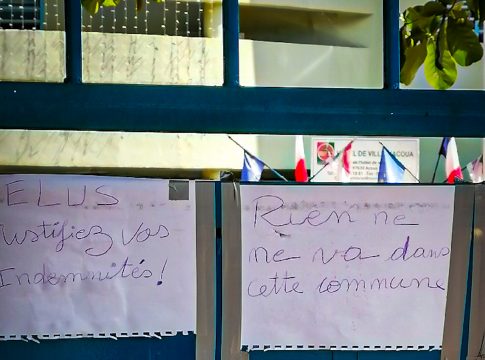 ELUS
Justifiez vos
Indemnités!
Rien ne
ne va dans
cette commune
L DE VILLE ACOUA